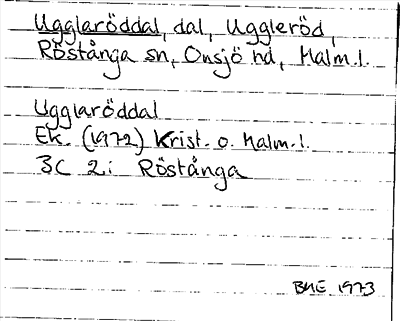 Ugglaröddal, dal, Uggleröd,
Röstånga sn, Onsjö hd, Malm.l.
Ugglaröddal
Ek. (1972) Krist. o. Malm.l.
3C 2i Röstånga
BME 1973